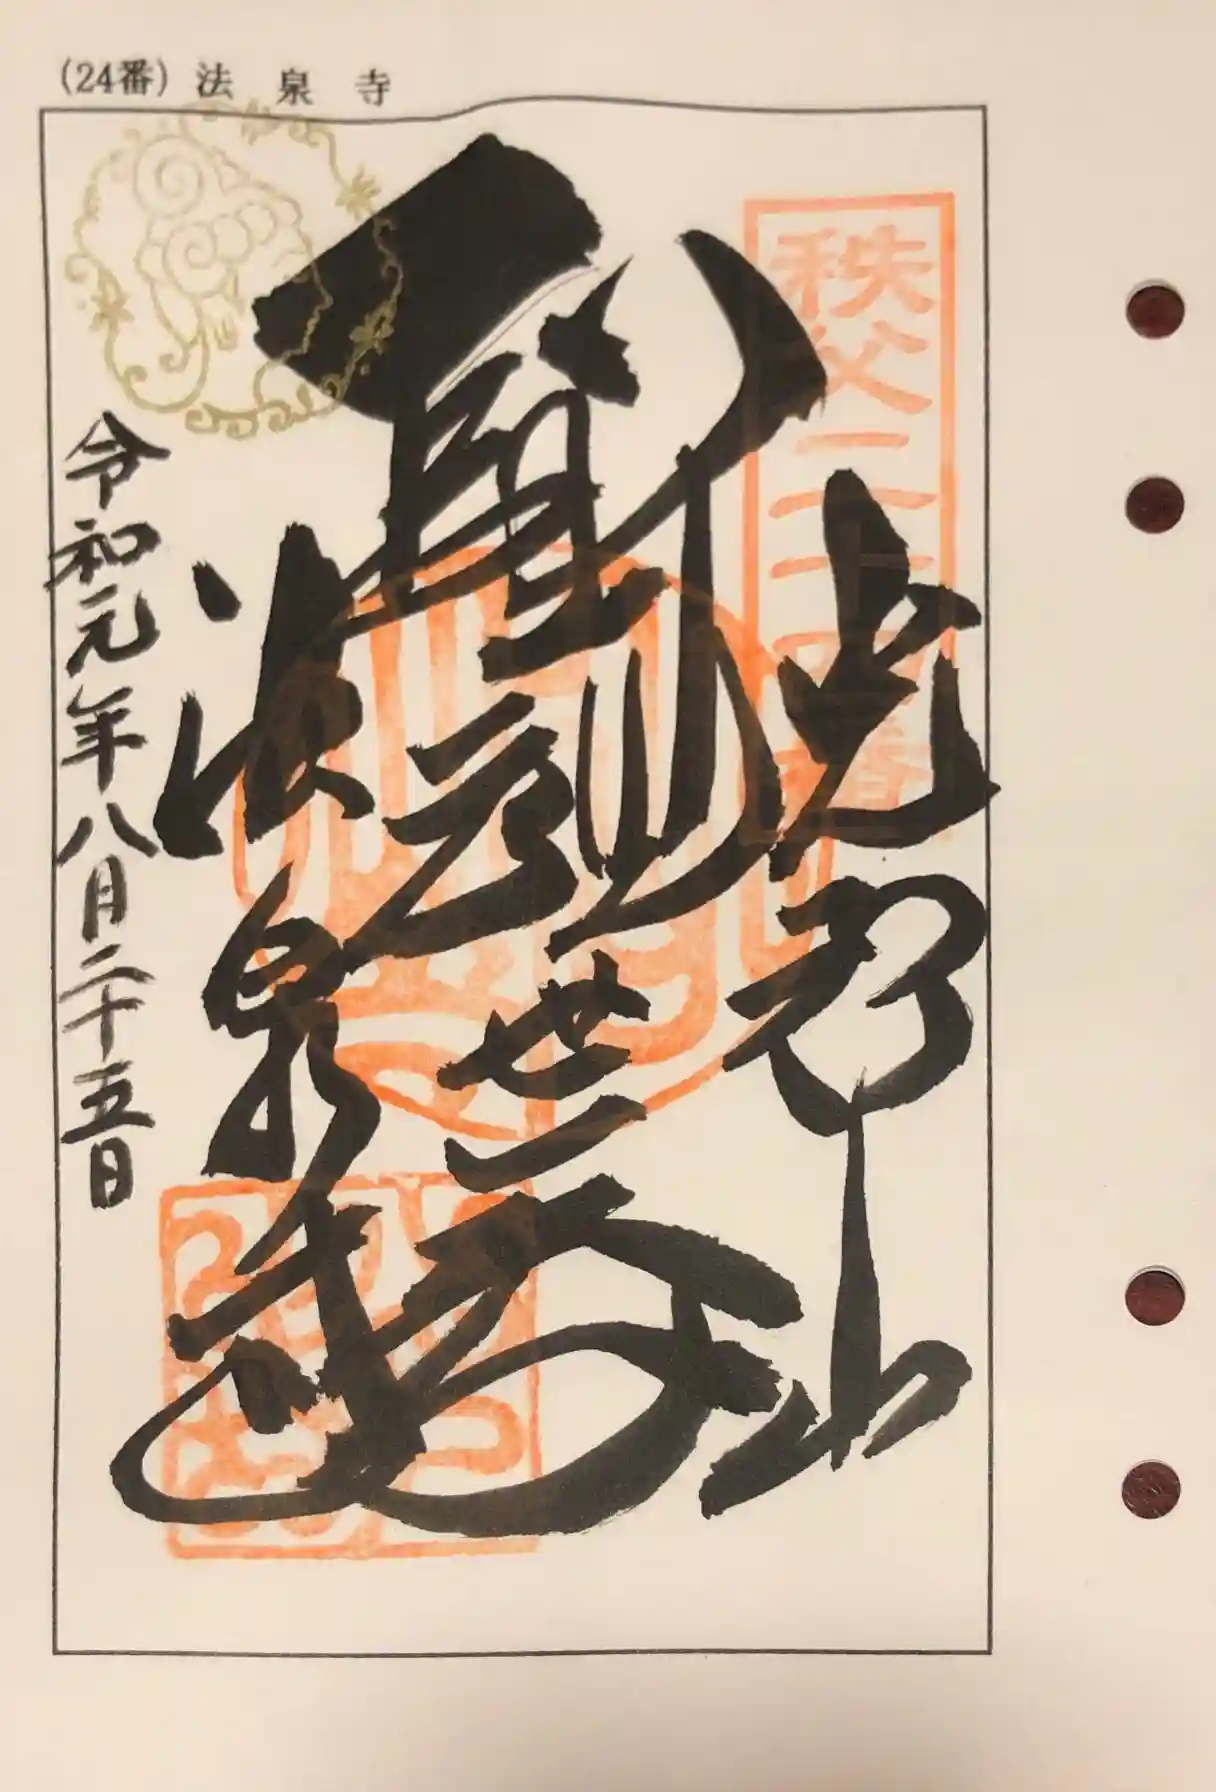 (24番) 法泉寺
秩父三十四番
光智山
聖観世音
法泉寺
令和元年八月二十五日